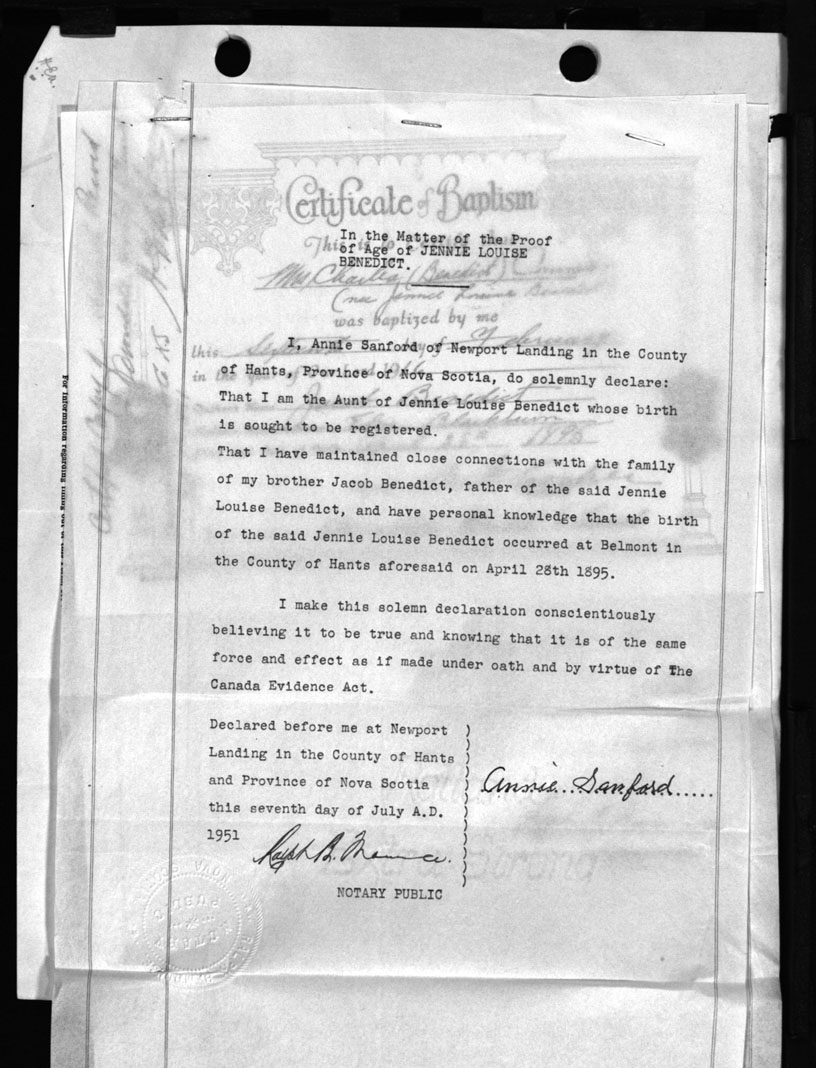 Certificate of Baptism
In the Matter of the Proof
of Age of JENNIE LOUISE
BENEDICT.
Mrs. Charles (Benedict)
(nee Jennie Louise
was baptized by me
this
I, Annie Sanford of Newport Landing in the County
in the
of Hants, Province of Nova Scotia, do solemnly declare:
That I am the Aunt of Jennie Louise Benedict whose birth
is sought to be registered.
1895
That I have maintained close connections with the family
of my brother Jacob Benedict, father of the said Jennie
Louise Benedict, and have personal knowledge that the birth
of the said Jennie Louise Benedict occurred at Belmont in
the County of Hants aforesaid on April 28th 1895.
I make this solemn declaration conscientiously
believing it to be true and knowing that it is of the same
force and effect as if made under oath and by virtue of The
Canada Evidence Act.
Declared before me at Newport
Landing in the County of Hants
and Province of Nova Scotia
this seventh day of July A.D.
1951
Annie Sanford
Ralph B.
NOTARY PUBLIC
For information regarding